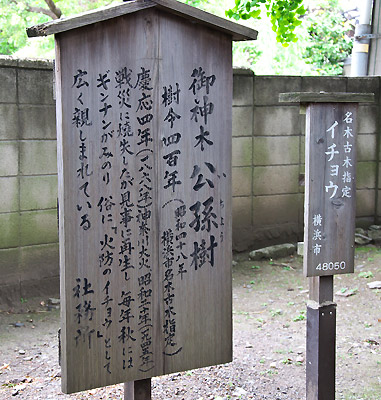 御神木 公孫樹
いちょう
樹令四百年(昭和四十八年 横浜市名木古木指定)
慶応四年(一八六八年)神奈川大火 昭和二十年(一九四五年)
戦災に焼失したが見事に再生し毎年秋には
ギンナンがみのり 俗に「火防のイチョウ」として
広く親しまれている
社務所
名木古木指定
イチョウ
横浜市
48050